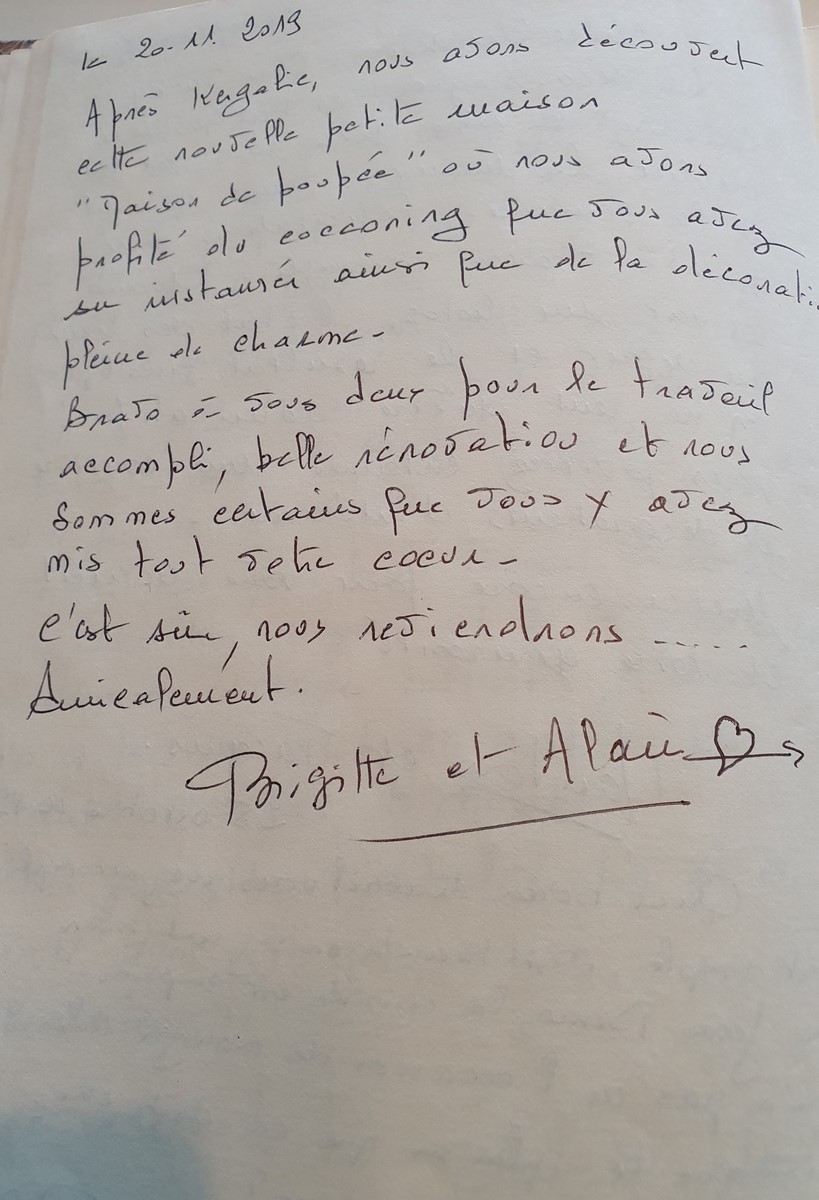 le 20.11.2019
Après Kergalie, nous avons découvert
cette nouvelle petite maison
"Maison de poupée" où nous avons
profité du cocconing que vous avez
su instaurer ainsi que de la décorati
pleine de charme -
Bravo à vous deux pour le travail
accompli, belle rénovation et nous
sommes certains que vous y avez
mis tout votre coeur -
c'est sûr, nous reviendrons .....
Amicalement.
Brigitte et Alain